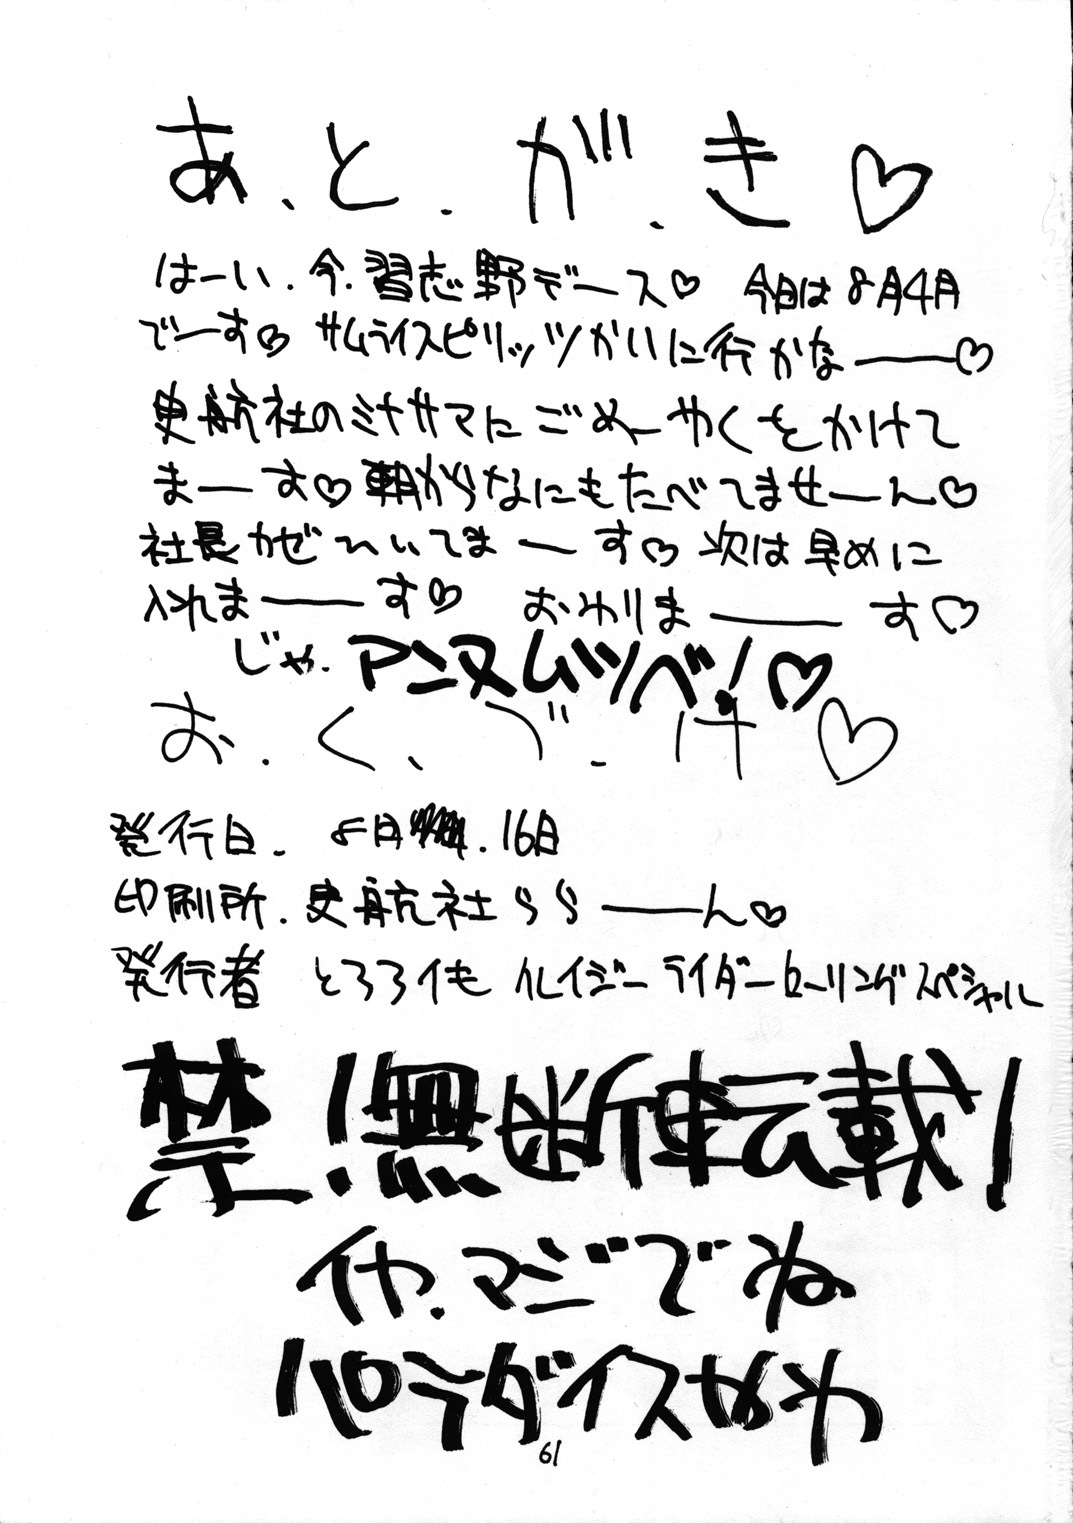 あ.と.が.き♡
はーい.今.習志野デース♡ 今日は8月4月
でーす♡ サムライスピリッツかいに行かなー♡
史航社のミナサマにごめーやくをかけて
まーす♡ 朝からなにもたべてませーん♡
社長かぜひいてまーす♡ 次は早めに
入れまーす♡ おわりまーす♡
じゃ.アンヌムツベ!♡
お.く.づ.け♡
発行日. 8日 .16日
印刷所.史航社ららーん♡
発行者 とろろイも クレイジーライダーローリングスペシャル
禁!無断転載!
イや.マジでね
パラダイスなわ
61